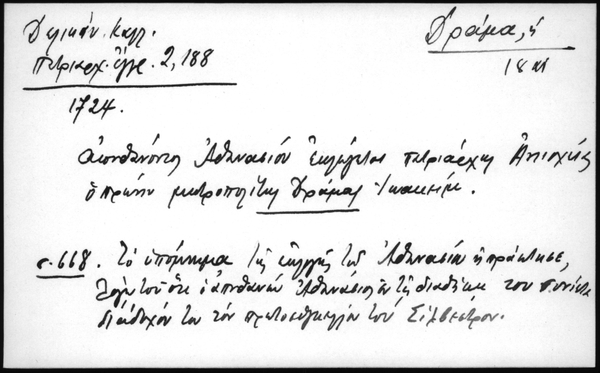 Δελικάν. Καλλ.
Πατριαρχ. έγγρ. 2, 188
Δράμα, ἡ
18 αι
1724.
ἀποθανόντος Ἀθανασίου ἐκλέγεται πατριάρχης Ἀντιοχείας
ὁ πρώην μητροπολίτης Δράμας Ἰωακείμ.
σ. 668. Τὸ ὑπόμνημα τῆς ἐκλογῆς τοῦ Ἀθανασίου
ὅτι ὁ ἀποθανὼν Ἀθανάσιος ἐν τῇ διαθήκῃ του
διάδοχόν του τὸν πρωτοσύγκελλόν του Σίλβεστρον.